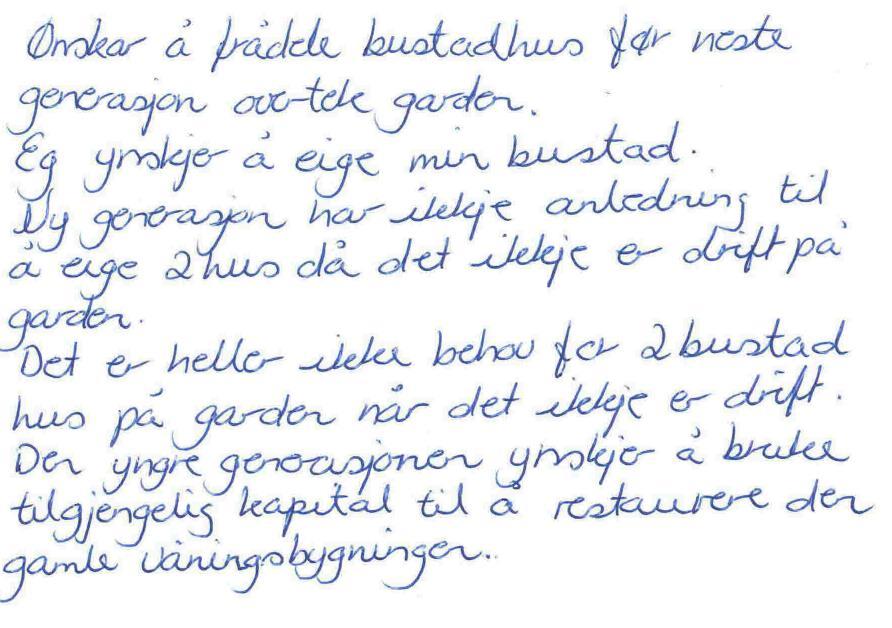 Ønskar å frådele bustadhus før neste
generasjon overtek garden.
Eg ynskjer å eige min bustad.
Ny generasjon har ikkje anledning til
å eige 2 hus då det ikkje er drift på
garden.
Det er heller ikke behov for 2 bustad
hus på garden når det ikkje er drift.
Den yngre generasjonen ynskjer å bruke
tilgjengelig kapital til å restaurere den
gamle våningsbygningen.